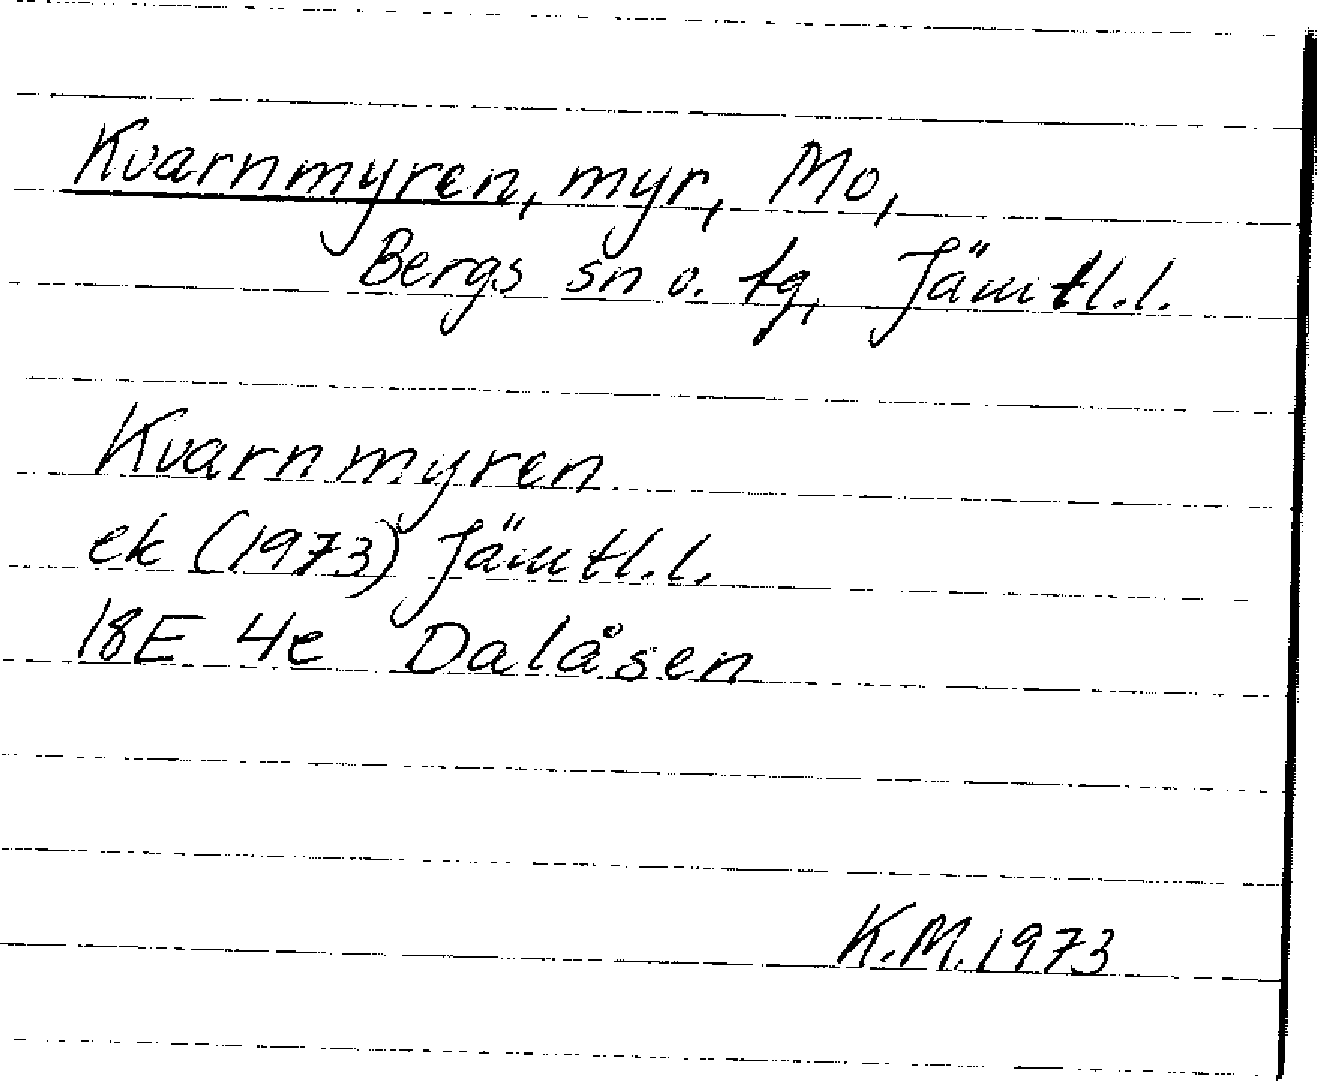 Kvarnmyren, myr, Mo,
Bergs sn o. tg, Jämtl.l.
Kvarnmyren
ek (1973) Jämtl.l.
18E 4e Dalåsen
K.M. 1973